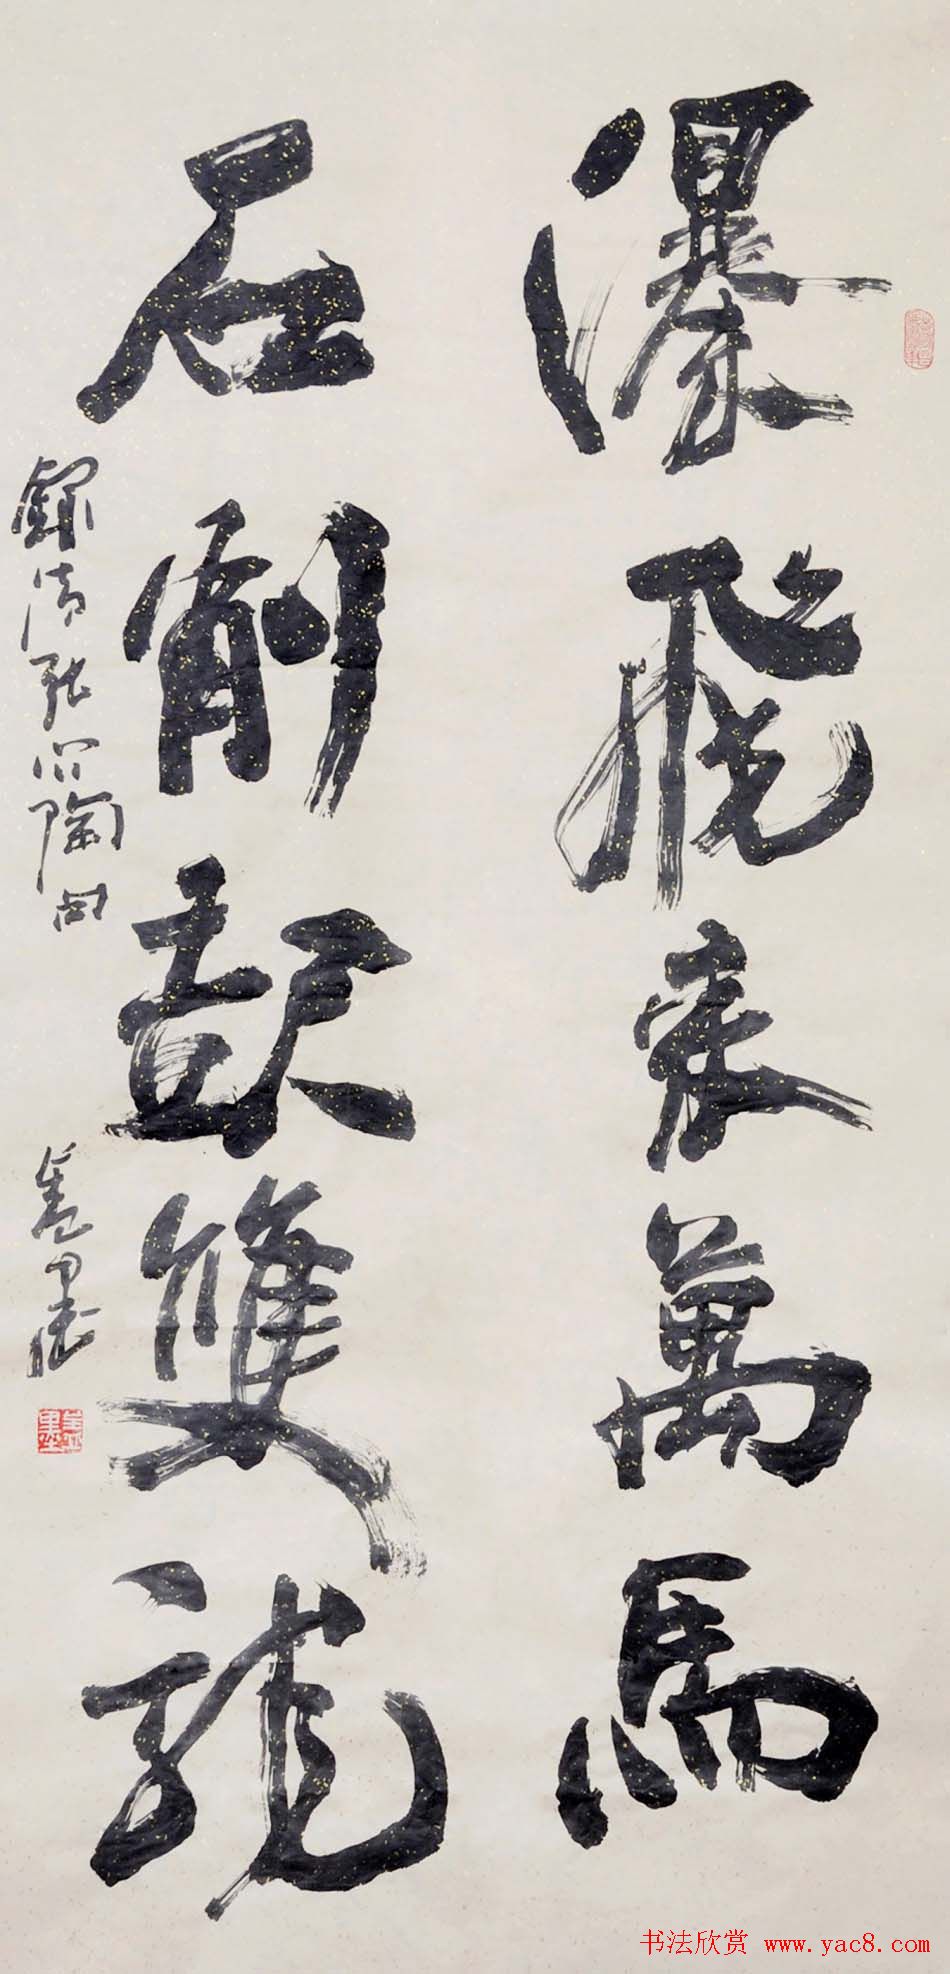 瀑飛來萬馬
石削雙龍
錄清張問陶句
书法欣赏 www.yac8.com